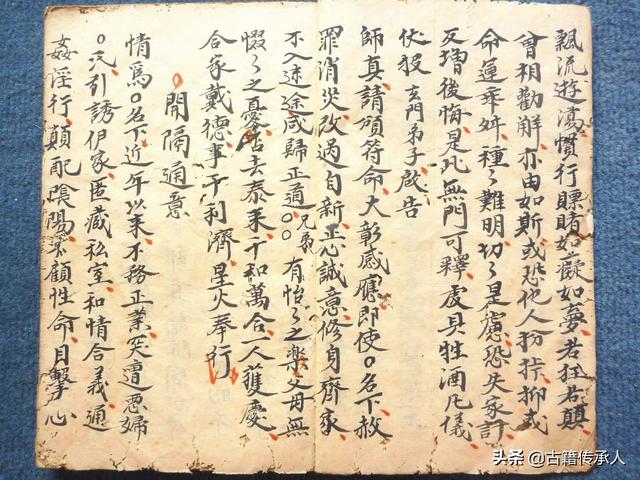 飄流遊蕩慣行賭如癡如夢若狂若顛
曾相勸解亦由如斯或恐他人扮
命運乖舛種〻難明切〻是慮恐失家計
反增後悔是此無門可釋虔具牲酒凡儀
伏投玄門弟子啟告
師真請頒符命大彰感應即使○名下赦
罪消災改過自新正心誠意修身齊家
不入迷途咸歸正道○○兄弟有怡〻之樂父母無
惙〻之憂否去泰來千和萬合一人獲慶
合家戴德事干利濟星火奉行
○開隔通意
情為○名下近年以來不務正業突遭惡婦
○氏引誘伊家匿藏私室和情合義通
姦淫行顛配陰陽不顧性命目擊心
头条@古籍传承人